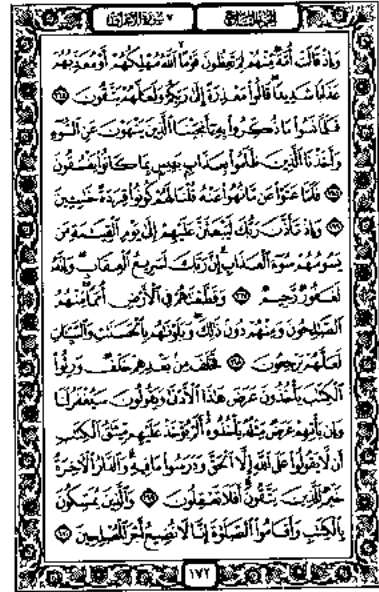 الجزء التاسع
٧ سورة الأعراف
وَإِذْ قَالَتْ أُمَّةٌ مِّنْهُمْ لِمَ تَعِظُونَ قَوْمًا ٱللَّهُ مُهْلِكُهُمْ أَوْ مُعَذِّبُهُمْ
عَذَابًا شَدِيدًا قَالُوا۟ مَعْذِرَةً إِلَىٰ رَبِّكُمْ وَلَعَلَّهُمْ يَتَّقُونَ ١٦٤
فَلَمَّا نَسُوا۟ مَا ذُكِّرُوا۟ بِهِۦٓ أَنجَيْنَا ٱلَّذِينَ يَنْهَوْنَ عَنِ ٱلسُّوٓءِ
وَأَخَذْنَا ٱلَّذِينَ ظَلَمُوا۟ بِعَذَابٍۭ بَـِٔيسٍۭ بِمَا كَانُوا۟ يَفْسُقُونَ
١٦٥ فَلَمَّا عَتَوْا۟ عَن مَّا نُهُوا۟ عَنْهُ قُلْنَا لَهُمْ كُونُوا۟ قِرَدَةً خَـٰسِـِٔينَ
١٦٦ وَإِذْ تَأَذَّنَ رَبُّكَ لَيَبْعَثَنَّ عَلَيْهِمْ إِلَىٰ يَوْمِ ٱلْقِيَـٰمَةِ مَن
يَسُومُهُمْ سُوٓءَ ٱلْعَذَابِ ۗ إِنَّ رَبَّكَ لَسَرِيعُ ٱلْعِقَابِ ۖ وَإِنَّهُۥ
لَغَفُورٌ رَّحِيمٌ ١٦٧ وَقَطَّعْنَـٰهُمْ فِى ٱلْأَرْضِ أُمَمًا ۖ مِّنْهُمُ
ٱلصَّـٰلِحُونَ وَمِنْهُمْ دُونَ ذَٰلِكَ ۖ وَبَلَوْنَـٰهُم بِٱلْحَسَنَـٰتِ وَٱلسَّيِّـَٔاتِ
لَعَلَّهُمْ يَرْجِعُونَ ١٦٨ فَخَلَفَ مِنۢ بَعْدِهِمْ خَلْفٌ وَرِثُوا۟
ٱلْكِتَـٰبَ يَأْخُذُونَ عَرَضَ هَـٰذَا ٱلْأَدْنَىٰ وَيَقُولُونَ سَيُغْفَرُ لَنَا
وَإِن يَأْتِهِمْ عَرَضٌ مِّثْلُهُۥ يَأْخُذُوهُ ۚ أَلَمْ يُؤْخَذْ عَلَيْهِم مِّيثَـٰقُ ٱلْكِتَـٰبِ
أَن لَّا يَقُولُوا۟ عَلَى ٱللَّهِ إِلَّا ٱلْحَقَّ وَدَرَسُوا۟ مَا فِيهِ ۗ وَٱلدَّارُ ٱلْـَٔاخِرَةُ
خَيْرٌ لِّلَّذِينَ يَتَّقُونَ ۗ أَفَلَا تَعْقِلُونَ ١٦٩ وَٱلَّذِينَ يُمَسِّكُونَ
بِٱلْكِتَـٰبِ وَأَقَامُوا۟ ٱلصَّلَوٰةَ إِنَّا لَا نُضِيعُ أَجْرَ ٱلْمُصْلِحِينَ ١٧٠
١٧٢